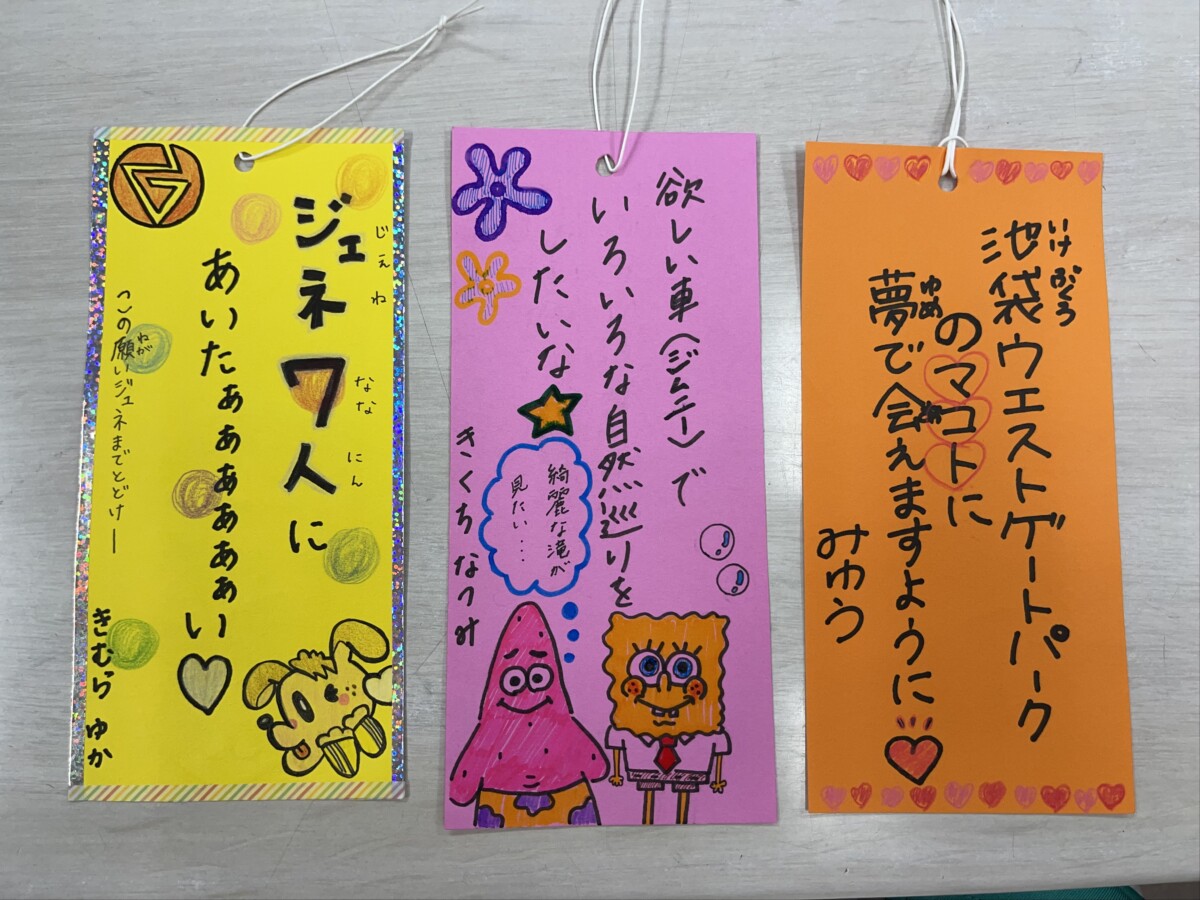 じぇね なな にん
ジェネ7人に
あいたぁぁぁぁぁぁい
ねが
この願いジェネまでとどけー
きむら ゆか
欲しい車(ジムニー)で
いろいろな自然巡りを
したいな
綺麗な滝が
見たい...
きくち なつみ
いけぶくろ
池袋ウエストゲートパーク
のマコトに
ゆめ
夢で会えますように
みゆう